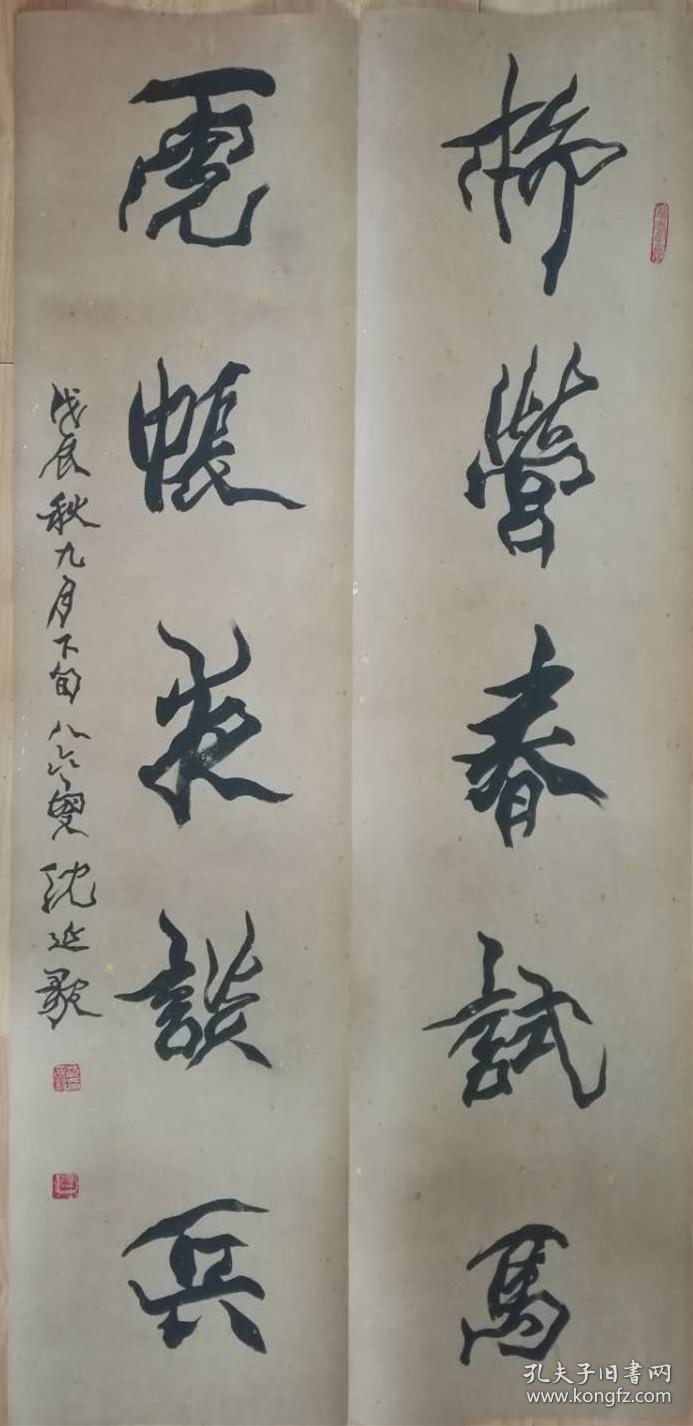 柳營春試馬
虎帳夜談兵
戊辰秋九月下旬八六叟沈延毅
孔夫子旧书网
www.kongfz.com